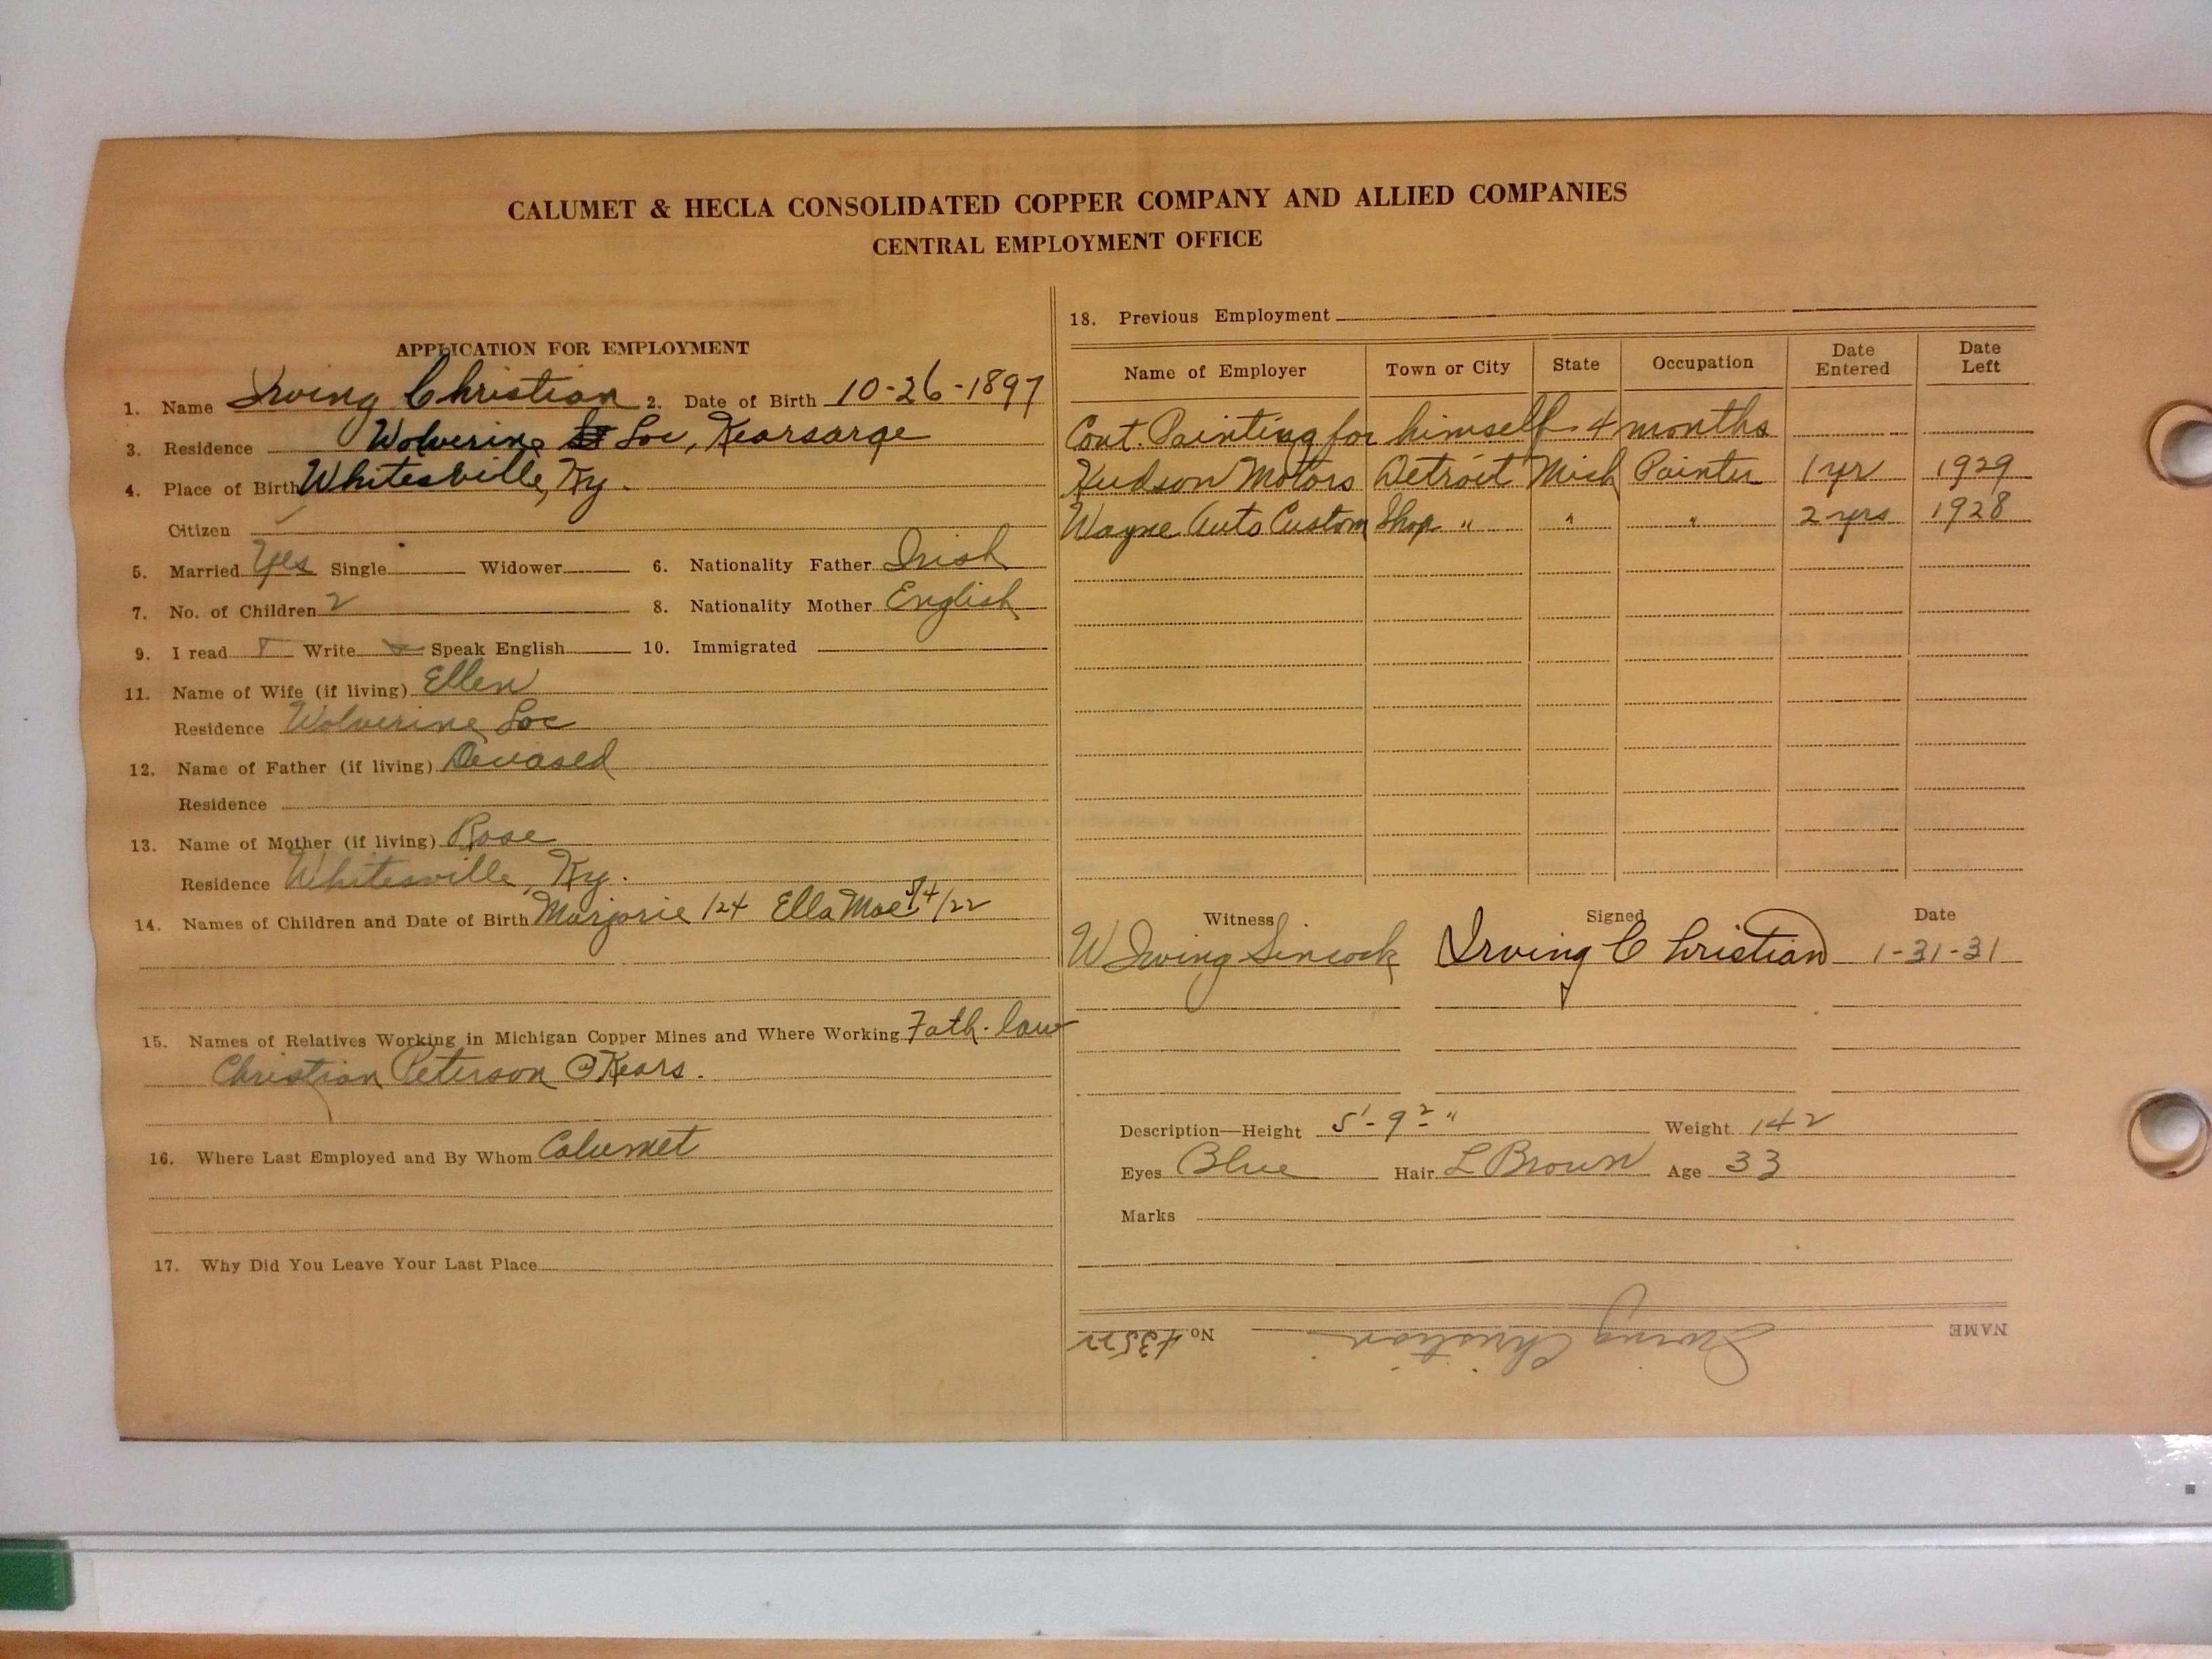 CALUMET & HECLA CONSOLIDATED COPPER COMPANY AND ALLIED COMPANIES
CENTRAL EMPLOYMENT OFFICE
APPLICATION FOR EMPLOYMENT
1. Name Irving Christian 2. Date of Birth 10-26-1897
3. Residence Wolverine Loc, Kearsarge
4. Place of Birth Whitesville, Ky.
Citizen ✓
5. Married Yes Single Widower 6. Nationality Father Irish
7. No. of Children 2 8. Nationality Mother English
9. I read Write Speak English 10. Immigrated
11. Name of Wife (if living) Ellen
Residence Wolverine Loc
12. Name of Father (if living) Deceased
Residence
13. Name of Mother (if living) Rose
Residence Whitesville, Ky.
14. Names of Children and Date of Birth Marjorie 1/24 Ella Mae 5/4/22
15. Names of Relatives Working in Michigan Copper Mines and Where Working Fath-law
Christian Peterson @ Kears.
16. Where Last Employed and By Whom Calumet
17. Why Did You Leave Your Last Place
18. Previous Employment
Name of Employer Town or City State Occupation Date Entered Date Left
Cont. Painting for himself 4 months
Hudson Motors Detroit Mich Painter 1 yr 1929
Wayne Auto Custom Shop " " " 2 yrs 1928
Witness Signed Date
W Irving Sincock Irving Christian 1-31-31
Description—Height 5'-9 2 " Weight 142
Eyes Blue Hair L Brown Age 33
Marks
NAME Irving Christian No. 43522